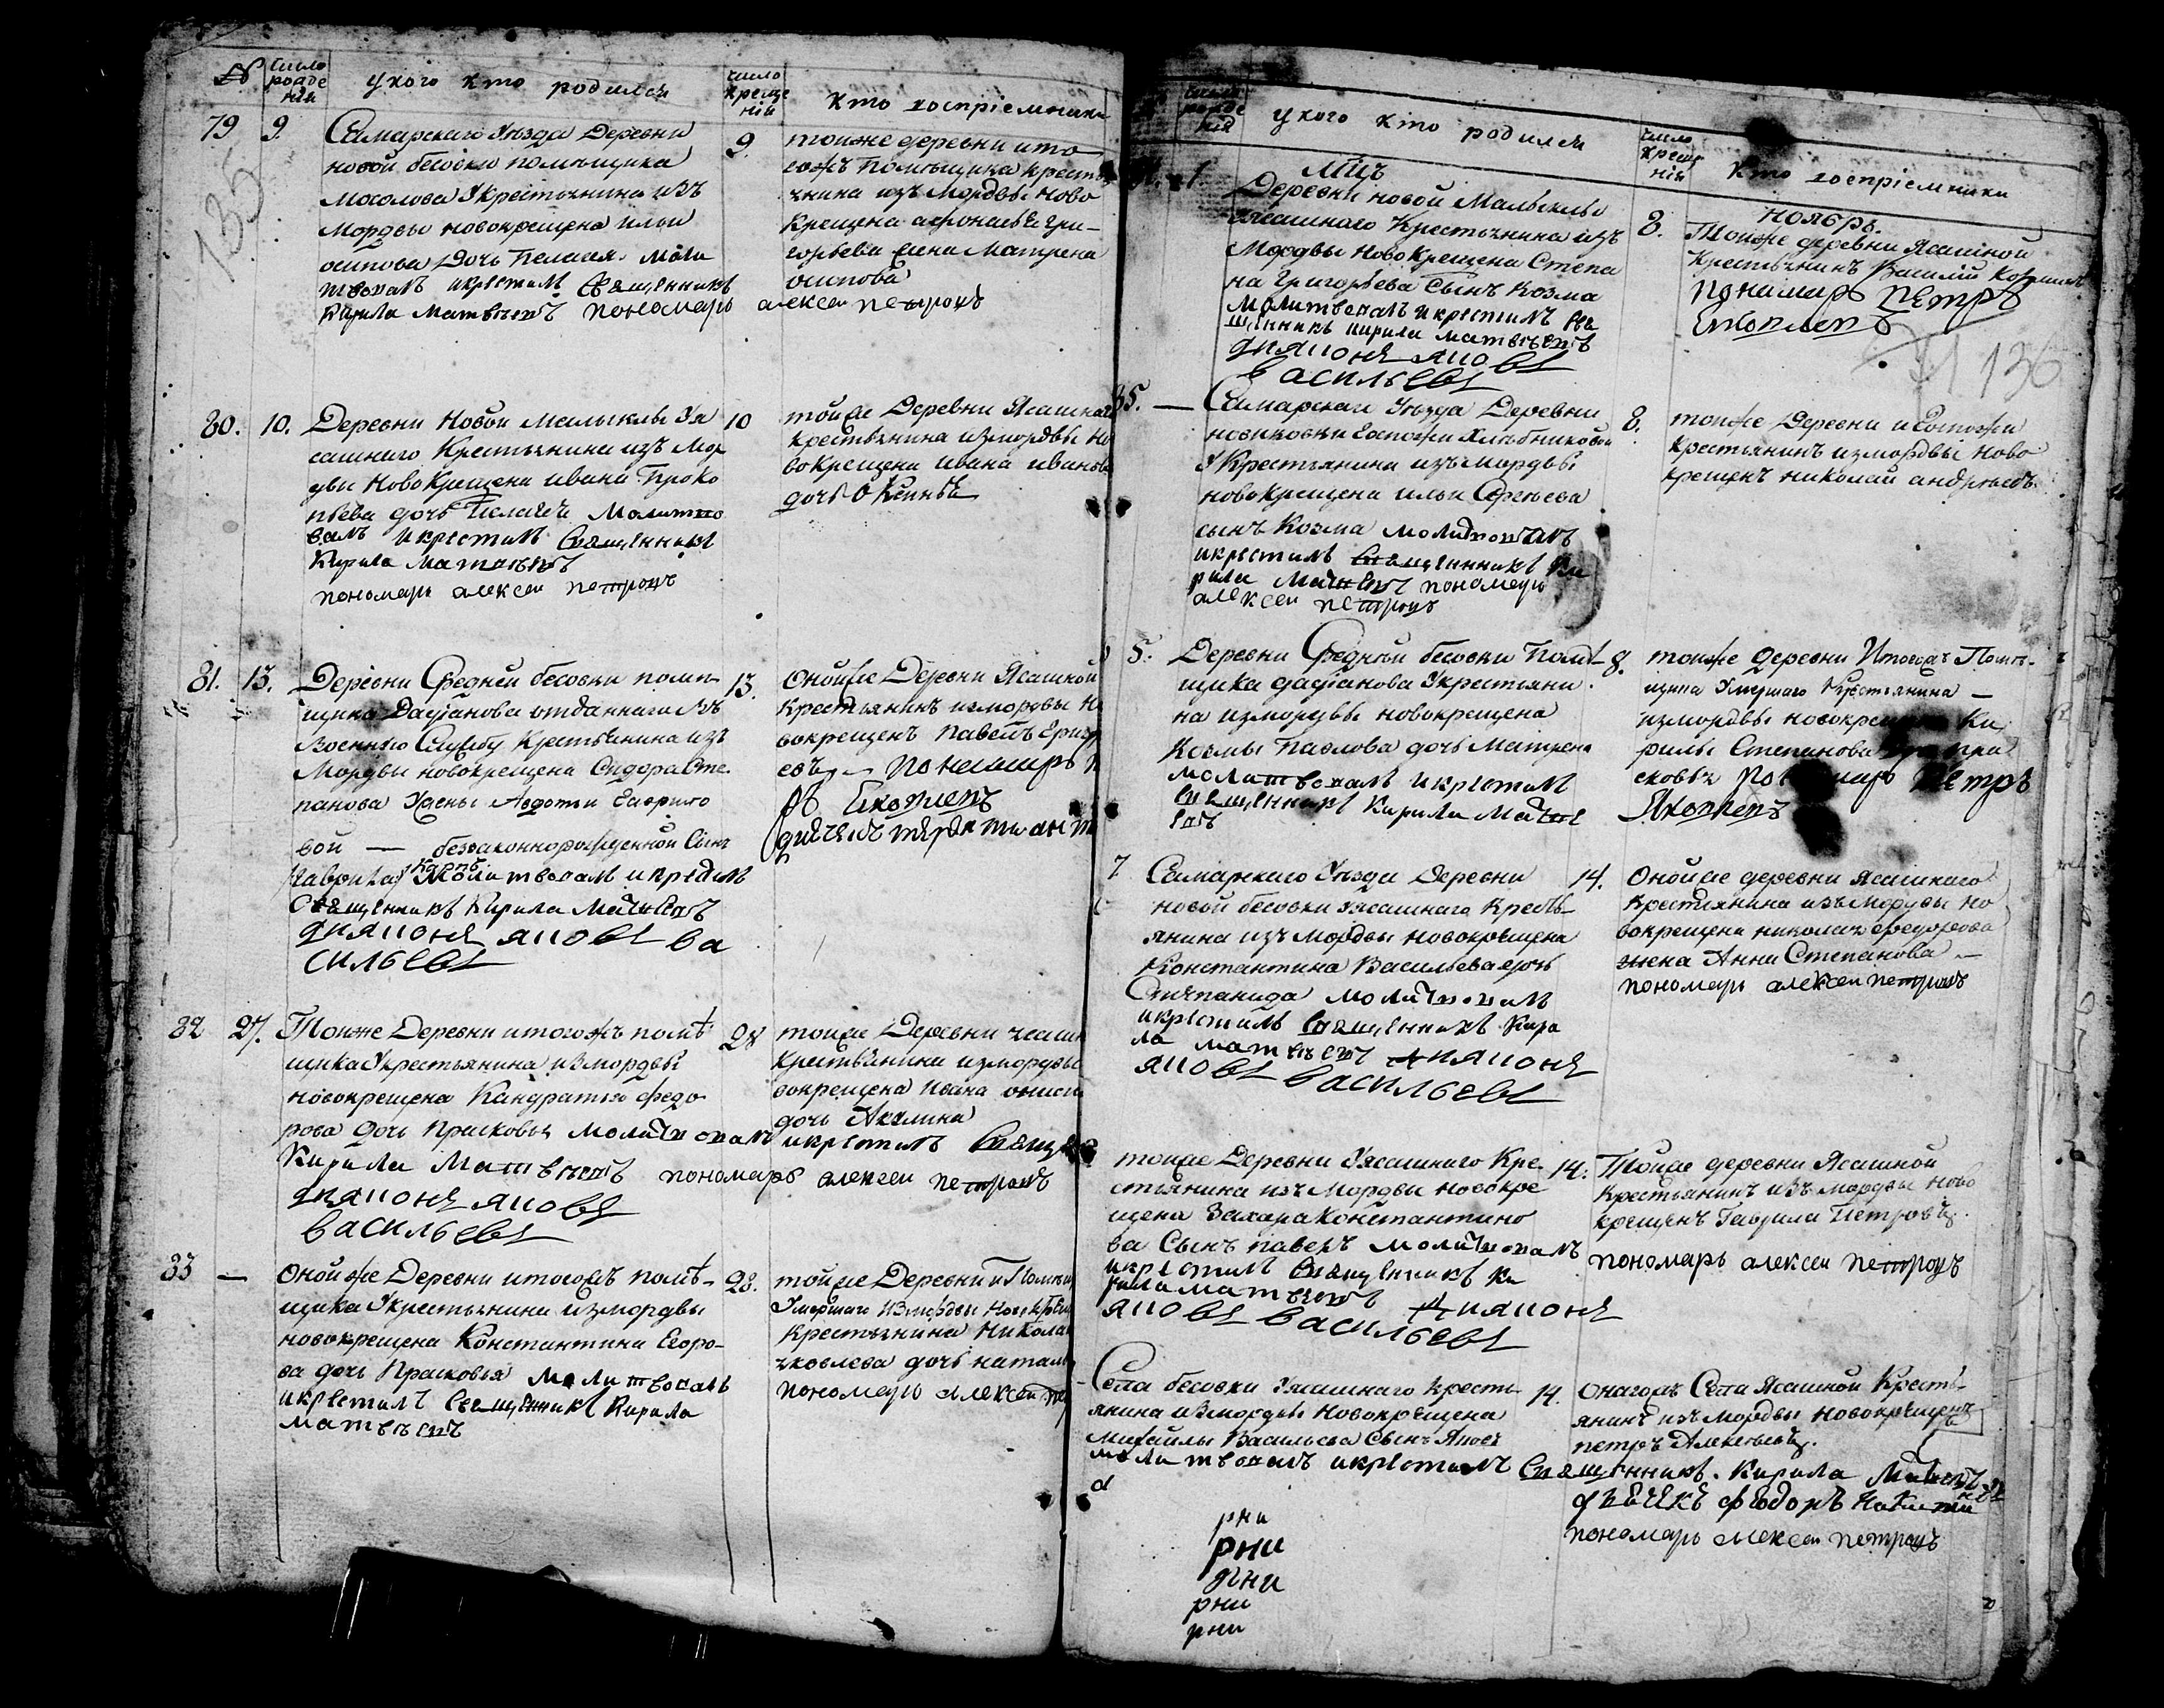 № число рожденія у кого кто родился число крещенія кто воспріемники
79 9. Самарскаго Уезда Деревни
новой бесовки помещика
Мосолова Укрестьянина изъ
Мордвы новокрещена ильи
осипова Дочь Пелагея моли
твовалъ икрестилъ Священникъ
Кирила Матвеевъ пономарь алексеи петровъ
9. тойже деревни ито
гожъ Помещика кресть
янина изъ Мордвы ново
крещена афонасья гри-
горьева Елена Матрена
осипова
135
80. 10. Деревни Новой малыклы Уя
сашнаго Крестьянина изъ Мор
двы Новокрещена ивана Проко
пьева дочь Пелагея Молитво
валъ икрестилъ Священникъ
Кирила Матвеевъ
пономарь алексеи петровъ
10 тойже Деревни Ясашнаго
крестьянина измордвы но
вокрещена ивана иванова
дочь
81. 13. Деревни Средней бесовки поме
щика Дадианова отданнаго въ
Военную Службу Крестьянина изъ
Мордвы новокрещена Сидора Сте
панова Ужены Авдотьи Гаврило
вой — беззаконнорожденной Сынъ
Гаврила Молитвовалъ икрестилъ
Священникъ Кирила Матвеевъ
диякон яковъ ва
сильевъ
13. Онойже Деревни Ясашной
крестьянинъ измордвы но
вокрещенъ Павелъ Григорь
евъ пономарь п
ръ Яковлевъ
82 27. Тойже Деревни итогожъ поме
щика Укрестьянина измордвы
новокрещена Кандратья федо
рова дочь Прасковья Молитвовалъ икрестилъ Священ
Кирила Матвеевъ пономарь алексеи петровъ
дияконъ яковъ
васильевъ
28 тойже Деревни ясашн
крестьянина измордвы
вокрещена Ивана
дочь Акулина
83 — Онойже Деревни итогожъ поме-
щика Укрестьянина измордвы
новокрещена Константина Егоро-
ва дочь Прасковья молитвовалъ
икрестилъ Священникъ Кирила
Матвеевъ
28. тойже Деревни и Помещи
Умершаго измордвы Новокрещ
Крестьянина Никола
яковлева дочь наталья
пономарь алексеи пе
число рожденія у кого кто родился число крещенія кто воспріемники
Мцъ ноябрь.
1 Деревни новой Малыклы
ясашнаго Крестьянина изъ
Мордвы Новокрещена Степа
на Григорьева Сынъ Козма
Молитвовалъ икрестилъ Свя
щенникъ Кирила Матвеевъ
дияконъ яковъ
васильевъ
8. Тойже деревни Ясашной
Крестьянинъ Василий
пономарь петръ
Яковлевъ
136
85. — Самарскаго Уезда Деревни
новиковки Госпожи Хлебниковой
Укрестьянина изъ мордвы
новокрещена ильи Сергеева
сынъ Козма молитвовалъ
икрестилъ Священникъ Ки
рила Матвеевъ пономарь
алексеи петровъ
8. тойже Деревни и Госпожи
крестьянинъ измордвы ново
крещенъ николай андреевъ
5. Деревни Средней бесовки Поме
щика дадианова Укрестьяни
на измордвы новокрещена
Козмы Павлова дочь Матрена
молитвовалъ икрестилъ
Священникъ Кирила Матве
евъ
8. тойже Деревни Итогожъ Поме-
щика Умершаго Крестьянина —
измордвы новокрещена Ки
рилы Степанова Пра
сковья пономарь Петръ
Яковлевъ
7 Самарскаго Уезда Деревни
новой бесовки Уясашнаго Кресть-
янина изъ Мордвы новокрещена
Константина Васильева дочь
Степанида молитвовалъ
икрестилъ Священникъ Кири
ла Матвеевъ дияконъ
яковъ васильевъ
14. Онойже деревни ясашнаго
Крестьянина изъ Мордвы но
вокрещена николая федорова
жена Анна Степанова —
пономарь алексеи петровъ
тойже Деревни Уясашнаго Кре
стьянина изъ Мордвы новокре
щена Захара Константино
ва Сынъ павелъ молитвовалъ
икрестилъ Священникъ Ки
рила матвеевъ дияконъ
яковъ васильевъ
14. Тойже деревни Ясашной
Крестьянинъ изъ мордвы ново
крещенъ Гаврила Петровъ.
пономарь алексеи петровъ
Села бесовки Уясашнаго кресть
янина измордвы новокрещена
Михайлы Васильева Сынъ Яковъ
молитвовалъ икрестилъ Священникъ Кирила Матвеевъ
14. Онагожъ Села Ясашной Кресть-
янинъ изъ Мордвы новокрещенъ
петръ Алексеевъ.
дьячекъ федоръ Никитинъ
пономарь алексеи петровъ
рни
рни
рни
рни